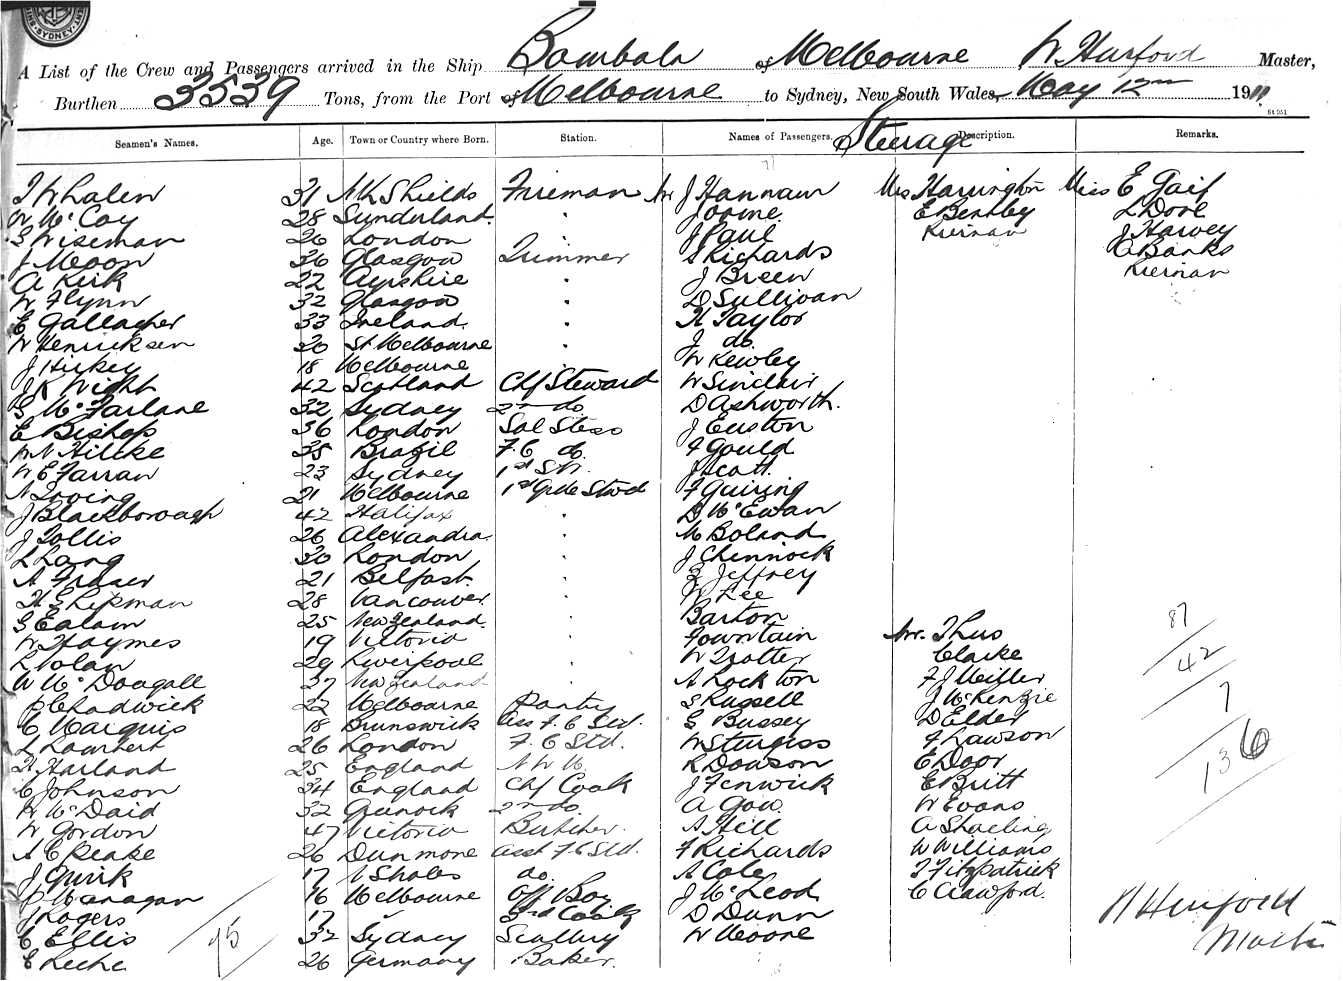 SYDNEY
A List of the Crew and Passengers arrived in the Ship Bombala of Melbourne, W. Hurford Master,
Burthen 3539 Tons, from the Port of Melbourne to Sydney, New South Wales, May 12th 1911
6t 251
Seamen's Names. Age. Town or Country where Born. Station. Names of Passengers. Steerage Description. Remarks.
T Whalen 31 Nth Shields Fireman Mr J Hannam Mrs Harrington Miss E Gaif
W McCoy 28 Sunderland " J Orme E Bentley L Dove
S Wiseman 26 London " J Paul Kiernan J Harvey
J Moon 36 Glasgow Trimmer S Richards A Banks
A Kirk 22 Ayrshire " J Breen Kiernan
W Flynn 32 Glasgow " D Sullivan
E Gallagher 33 Ireland " H Taylor
W Henricksen 20 St Melbourne " J do
J Hickey 18 Melbourne " W Kewley
J R Wight 42 Scotland Chf Steward W Sinclair
G McFarlane 32 Sydney 2nd do D Ashworth
E Bishop 36 London Sal Stess J Euston
W N Hilcke 35 Brazil F.C do F Gould
W E Farran 23 Sydney 1st S.W. J Scott
N Loving 21 Melbourne 1st Gde Stwd F Guiring
J Blackborough 42 Halifax " D McEwan
J Follis 26 Alexandra " M Boland
L Lang 30 London " J Chinnock
A Fraser 21 Belfast " Z Jeffrey
H E Lipman 28 Vancouver " W Lee
S Ealam 25 New Zealand " Barton 87
W Haymes 19 Victoria " Fountain Mr. Thus
L Nolan 29 Liverpool " W Trotter Clarke 42
W McDougall 37 New Zealand " A Lockton F J Miller
P Chadwick 22 Melbourne Pantry S Russell J McKenzie 7
C Marquis 18 Brunswick Ass F.C Std. G Bussey D Elder
L Lambert 26 London F.C Std. W Sturgiss F Lawson 136
H Harland 25 England N W M. R Dowson E Door
C Johnson 34 England Chf Cook J Fenwick E Britt
W McDaid 32 Greenock 2nd do A Gow W Evans
W Gordon 47 Victoria Butcher A Hill A Shaeling
A C Peake 26 Dunmore Asst F.C Std. F Richards W Williams
J Quirk 17 N Shales do. A Cole T Fitzpatrick
P Managan 16 Melbourne Off Boy J McLeod C Crawford
J Rogers 17 " 3rd Cook D Dunn W Hurford
C Ellis 32 Sydney Scullery W Moore Master
E Leche 26 Germany Baker
75